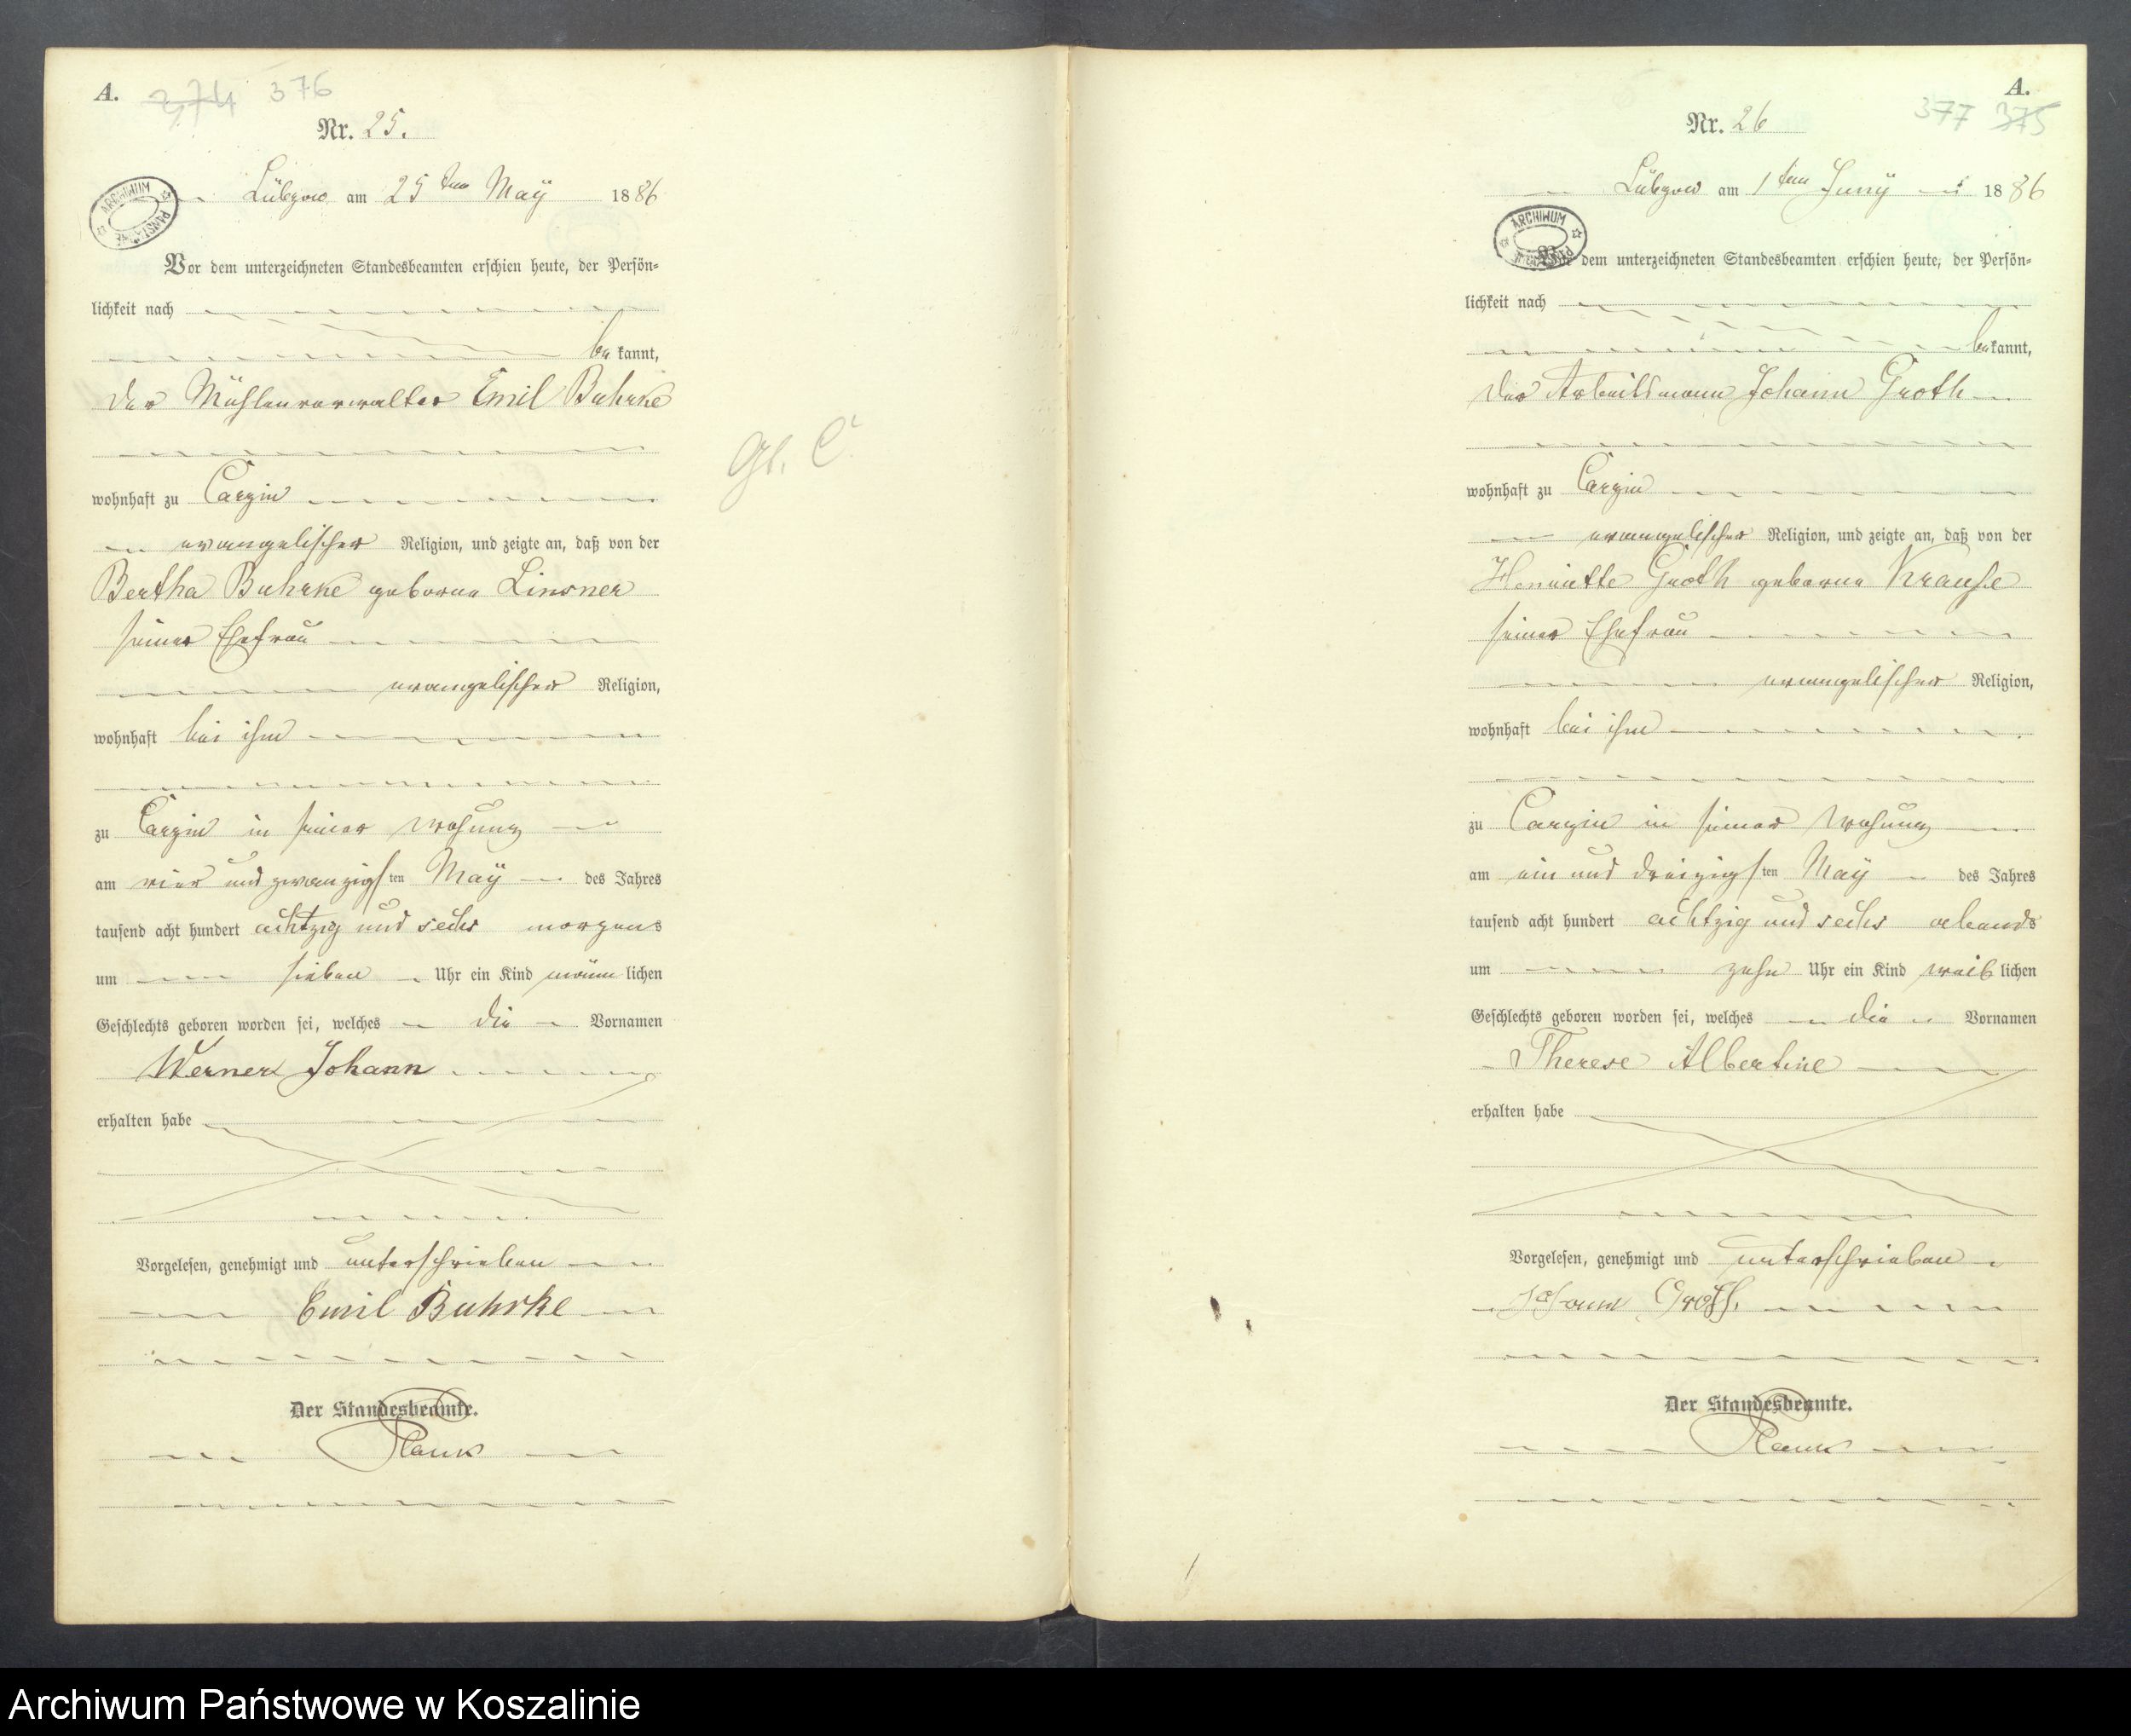 A.
274 376
Nr. 25.
Lübzow am 25ten May 1886
ARCHIWUM
Vor dem unterzeichneten Standesbeamten erschien heute, der Persön=
lichkeit nach
bekannt,
der Mühlenverwalter Emil Buhrke
Gl. C
wohnhaft zu Carzin
evangelischer Religion, und zeigte an, daß von der
Bertha Buhrke geborne Linsner
seiner Ehefrau
evangelischer Religion,
wohnhaft bei ihm
zu Carzin in seiner Wohung
am vier und zwanzigsten May des Jahres
tausend acht hundert achtzig und sechs morgens
um sieben Uhr ein Kind männlichen
Geschlechts geboren worden sei, welches die Vornamen
Werner Johann
erhalten habe
Vorgelesen, genehmigt und unterschrieben
Emil Buhrke
Der Standesbeamte.
A.
377 375
Nr. 26
Lübzow am 1ten Juny 1886
ARCHIWUM
Vor dem unterzeichneten Standesbeamten erschien heute, der Persön=
lichkeit nach
bekannt,
der Arbeitsmann Johann Groth
wohnhaft zu Carzin
evangelischer Religion, und zeigte an, daß von der
Henriette Groth geborne Krause
seiner Ehefrau
evangelischer Religion,
wohnhaft bei ihm
zu Carzin in seiner Wohung
am ein und dreizigsten May des Jahres
tausend acht hundert achtzig und sechs abends
um zehn Uhr ein Kind weiblichen
Geschlechts geboren worden sei, welches die Vornamen
Therese Albertine
erhalten habe
Vorgelesen, genehmigt und unterschrieben
Johann Groth
Der Standesbeamte.
Archiwum Państwowe w Koszalinie